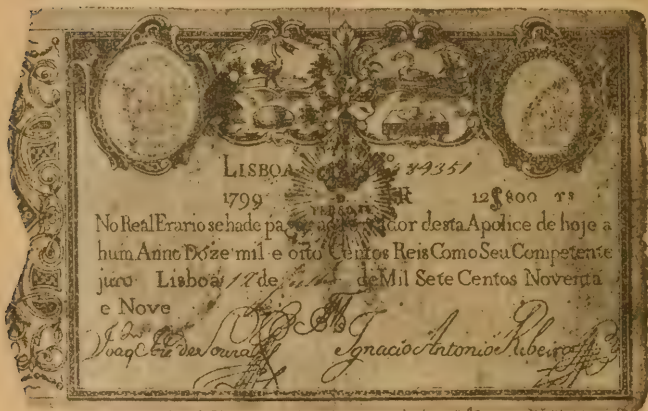 LISBOA Nº 84351
1799 R 12$800 rs
No Real Erario se hade pagar ao Portador desta Apolice de hoje a
hum Anno Doze mil e oito Centos Reis Como Seu Competente
juro Lisboa 12 de de Mil Sete Centos Noventa
e Nove
Joaq Jze de Souza Ignacio Antonio Ribeiro